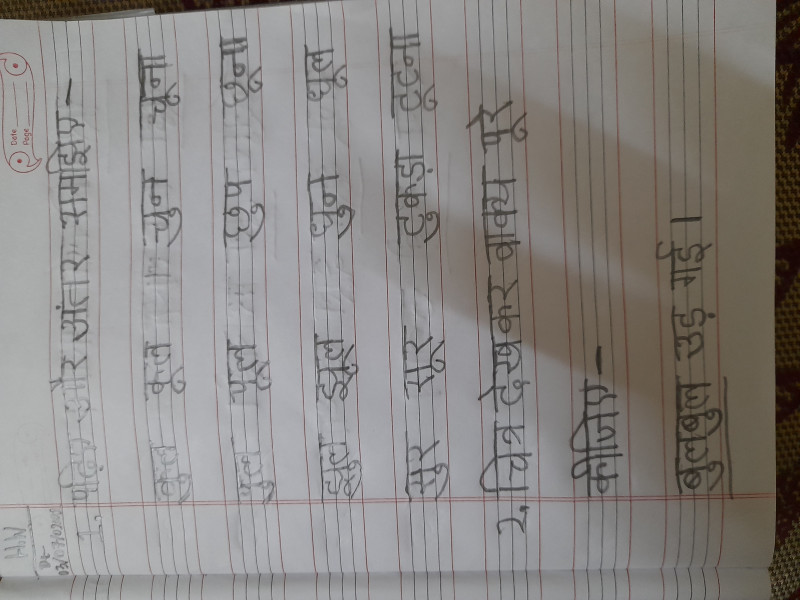 Date
Page
H.W
1. पढ़िए और अंतर समझिए -
कुल कूल चुन चूना
पुल फूल छुप छूना
झुल झूल धुन धूल
सुर सूर टुकड़ा टूटना
2. चित्र देखकर वाक्य पूरे
कीजिए -
बुलबुल उड़ गई।